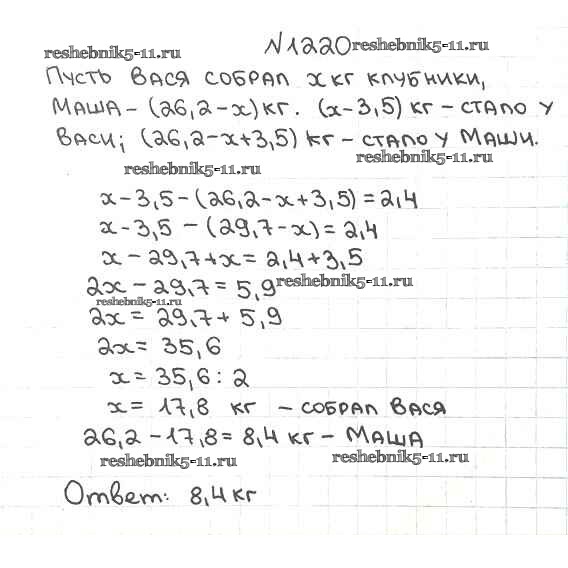 reshebnik5-11.ru №1220 reshebnik5-11.ru
Пусть Вася собрал x кг клубники,
Маша – (26,2-x) кг. (x-3,5) кг – стало у
Васи; (26,2-x+3,5) кг – стало у Маши.
reshebnik5-11.ru reshebnik5-11.ru
x-3,5-(26,2-x+3,5)=2,4
x-3,5 -(29,7-x)=2,4
x-29,7+x=2,4+3,5
2x-29,7=5,9 reshebnik5-11.ru
reshebnik5-11.ru
2x=29,7+5,9
2x=35,6
x=35,6:2
x= 17,8 кг – собрал Вася
26,2-17,8=8,4 кг – Маша
reshebnik5-11.ru reshebnik5-11.ru
Ответ: 8,4 кг